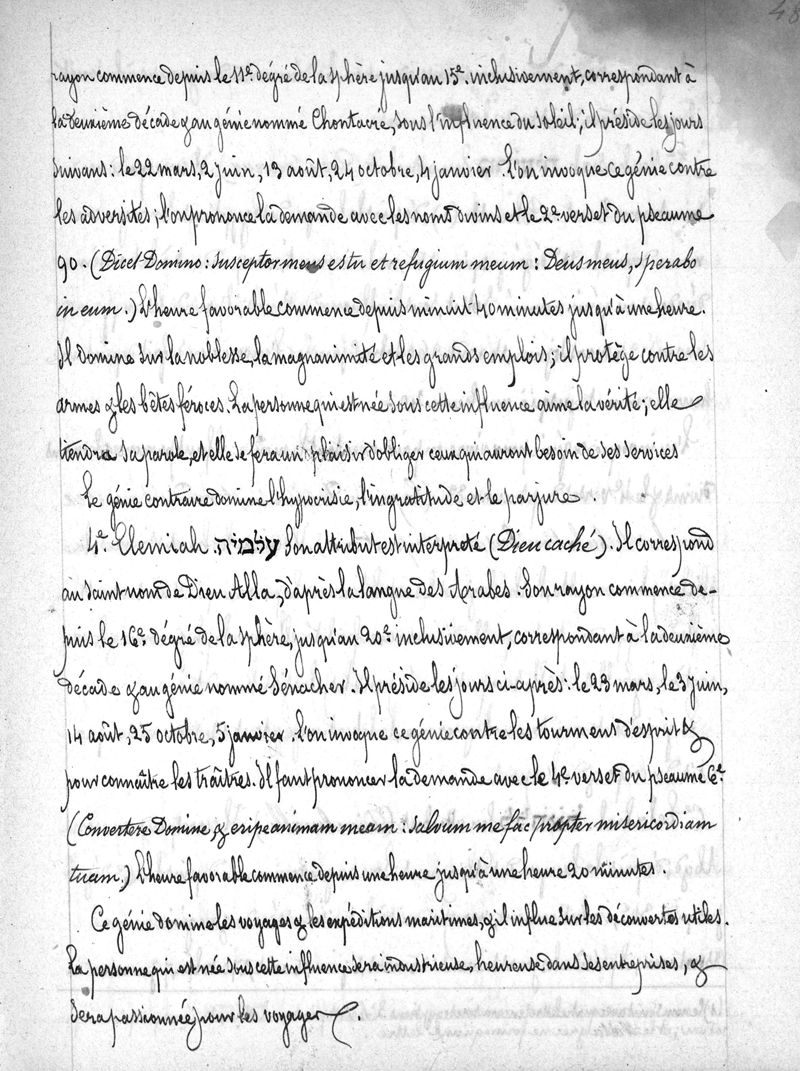 48
rayon commence depuis le 11e dégré de la sphère jusqu'au 15e inclusivement, correspondant à
la deuxième décade & au génie nommé Chontacré, sous l'influence du soleil; il préside les jours
suivans: le 22 mars, 2 juin, 13 août, 24 octobre, 4 janvier. l'on invoque ce génie contre
les adversités; l'on prononce la demande avec les noms divins et le 2e verset du pseaume
90. (Dicet Domino: susceptor meus es tu et refugium meum: Deus meus, sperabo
in eum.) L'heure favorable commence depuis minuit 40 minutes jusqu'à une heure.
Il domine sur la noblesse, la magnanimité et les grands emplois; il protège contre les
armes & les bêtes féroces. La personne qui est née sous cette influence aime la vérité; elle
tiendra sa parole, et elle se fera un plaisir d'obliger ceux qui auront besoin de ses services
Le génie contraire domine l'hypocrisie, l'ingratitude et le parjure.
4e. Elemiah. עלמיה Son attribut est interprété (Dieu caché). Il correspond
au saint nom de Dieu Alla, d'après la langue des Arabes. Son rayon commence de-
puis le 16e dégré de la sphère, jusqu'au 20e inclusivement, correspondant à la deuxième
décade & au génie nommé Sénacher. Il préside les jours ci-après: le 23 mars, le 3 juin,
14 août, 25 octobre, 5 janvier. l'on invoque ce génie contre les tourmens d'esprit &
pour connaître les traîtres. Il faut prononcer la demande avec le 4e verset du pseaume 6e.
(Convertere Domine, & eripe animam meam: salvum me fac propter misericordiam
tuam.) L'heure favorable commence depuis une heure jusqu'à une heure 20 minutes.
Ce génie domine les voyages & les expéditions maritimes, & il influe sur les découvertes utiles.
La personne qui est née sous cette influence sera industrieuse, heureuse dans ses entreprises, &
sera passionnée pour les voyages.